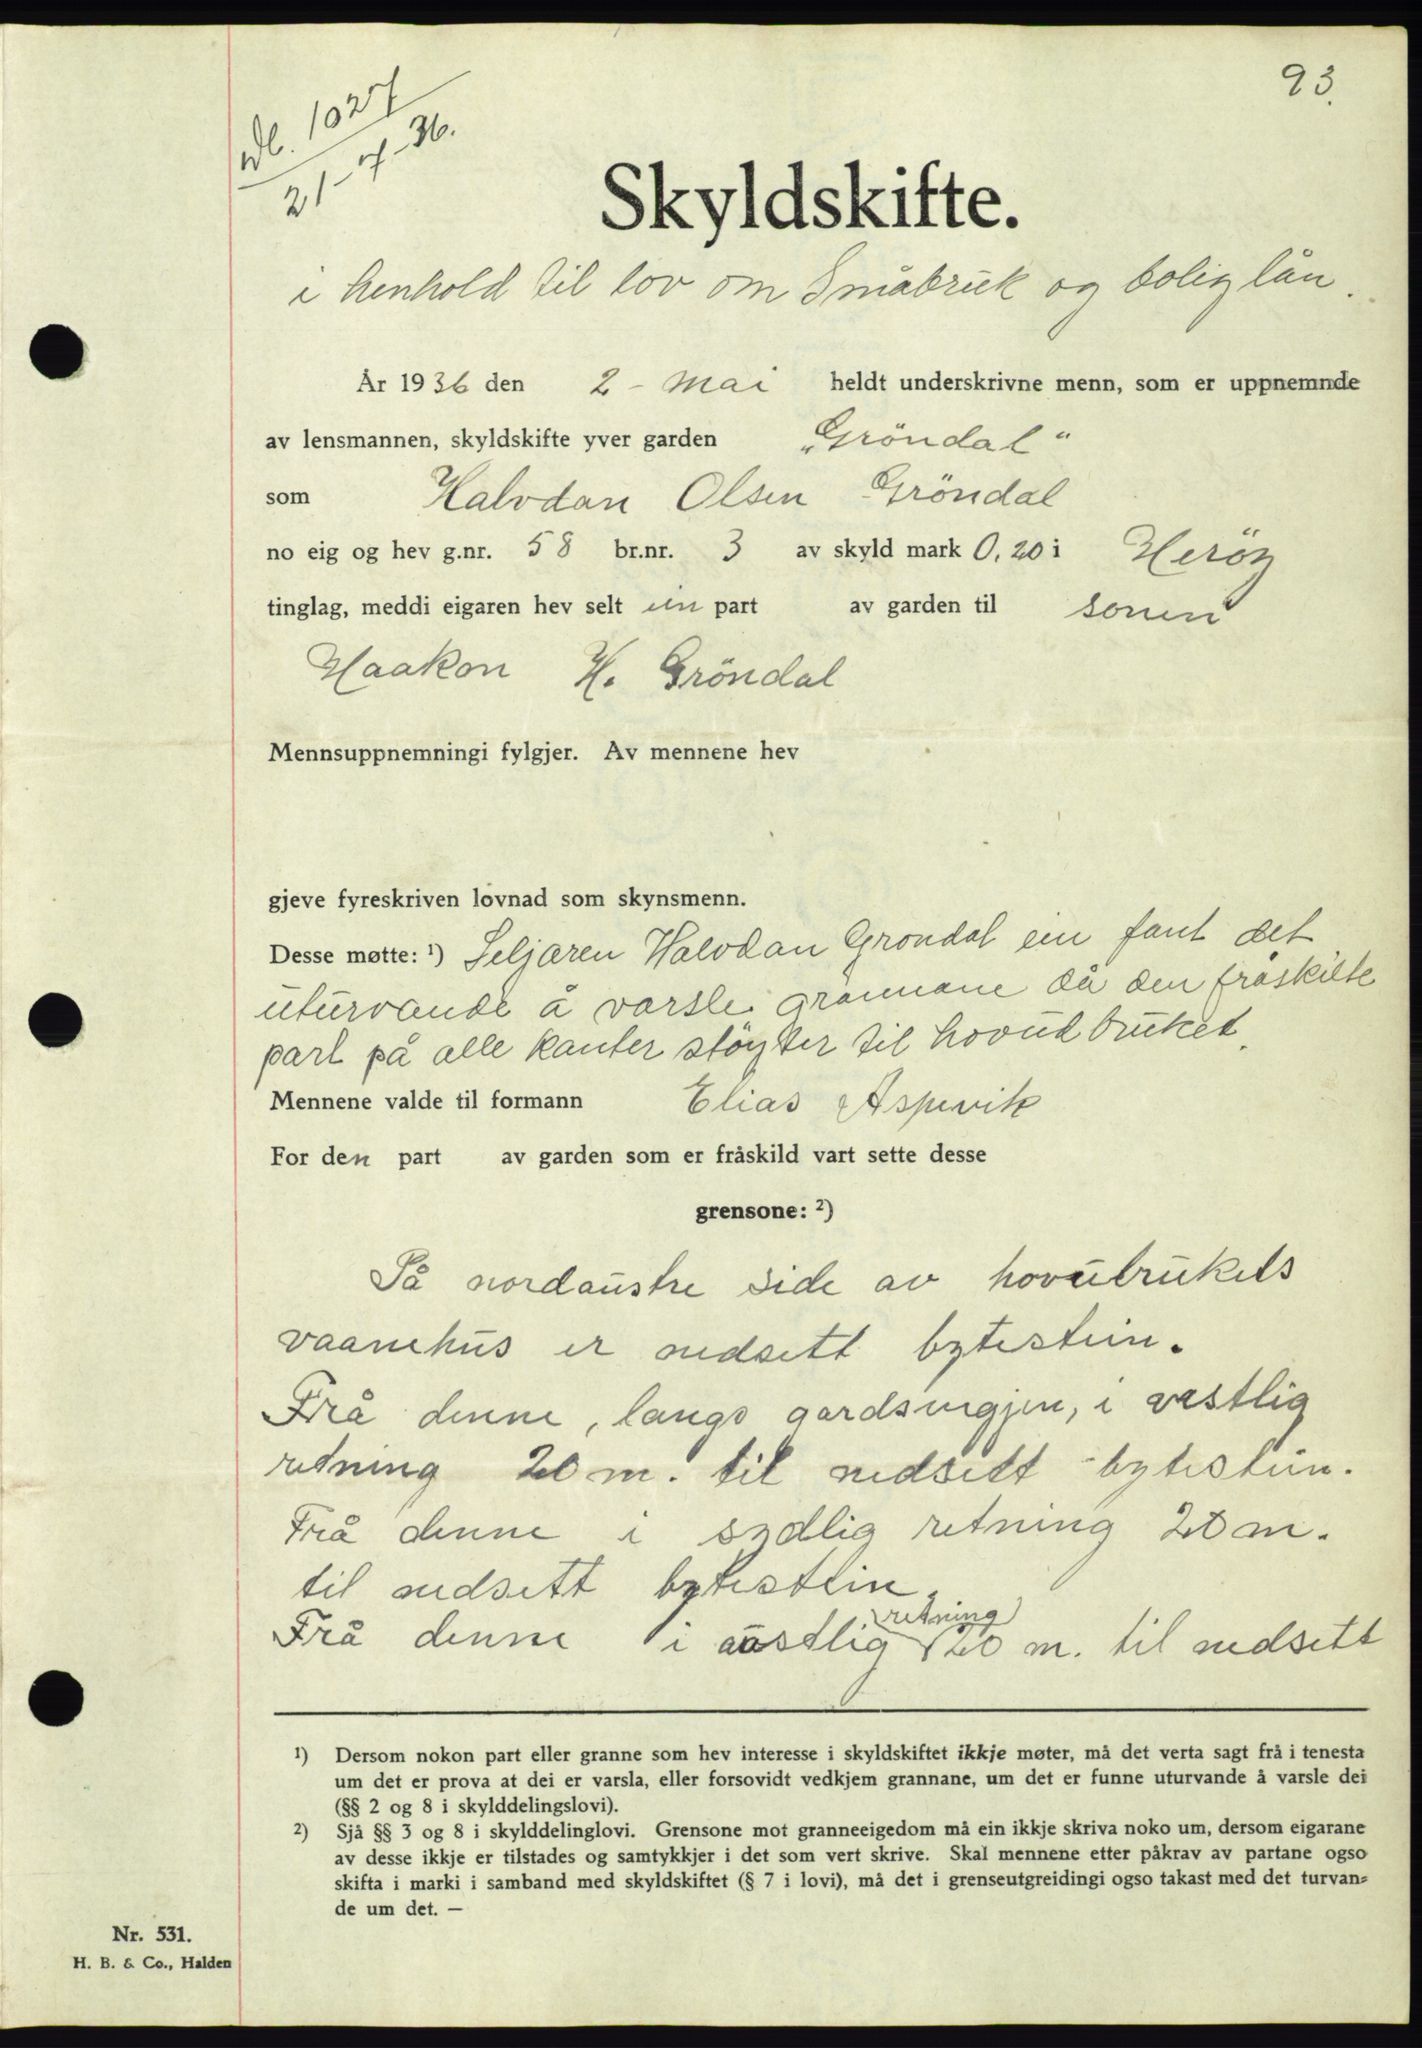 93.
Db. 1027
21-7-36.
Skyldskifte.
i henhold til lov om Småbruk og boliglån.
År 1936 den 2 - mai heldt underskrivne menn, som er uppnemnde
av lensmannen, skyldskifte yver garden „Gröndal“
som Halvdan Olsen Gröndal
no eig og hev g.nr. 58 br.nr. 3 av skyld mark 0,20 i Heröy
tinglag, meddi eigaren hev selt ein part av garden til sonen
Haakon H. Gröndal
Mennsuppnemningi fylgjer. Av mennene hev
gjeve fyreskriven lovnad som skynsmenn.
Desse møtte: ¹) Seljaren Halvdan Grondal ein fant det
uturvande å varsle grannane då den fråskilte
part på alle kanter stöyter til hovudbruket.
Mennene valde til formann Elias Aspevik
For den part av garden som er fråskild vart sette desse
grensone: ²)
På nordaustre side av hovubrukets
vaanehus er nedsett bytestein.
Frå denne, langs gardsvegjen, i vestlig
retning 20 m. til nedsett bytestein.
Frå denne i sydlig retning 20 m.
til nedsett bytestein.
Frå denne i austlig retning 20 m. til nedsett
¹) Dersom nokon part eller granne som hev interesse i skyldskiftet ikkje møter, må det verta sagt frå i tenesta
um det er prova at dei er varsla, eller forsovidt vedkjem grannane, um det er funne uturvande å varsle dei
(§§ 2 og 8 i skylddelingslovi).
²) Sjå §§ 3 og 8 i skylddelinglovi. Grensone mot granneeigedom må ein ikkje skriva noko um, dersom eigarane
av desse ikkje er tilstades og samtykkjer i det som vert skrive. Skal mennene etter påkrav av partane ogso
skifta i marki i samband med skyldskiftet (§ 7 i lovi), må det i grenseutgreidingi ogso takast med det turvan-
de um det. —
Nr. 531.
H. B. & Co., Halden